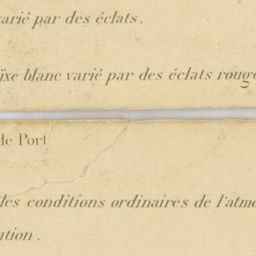 varié par des éclats.
ixe blanc varié par des éclats roug
de Port
des conditions ordinaires de l'atm
ntion.